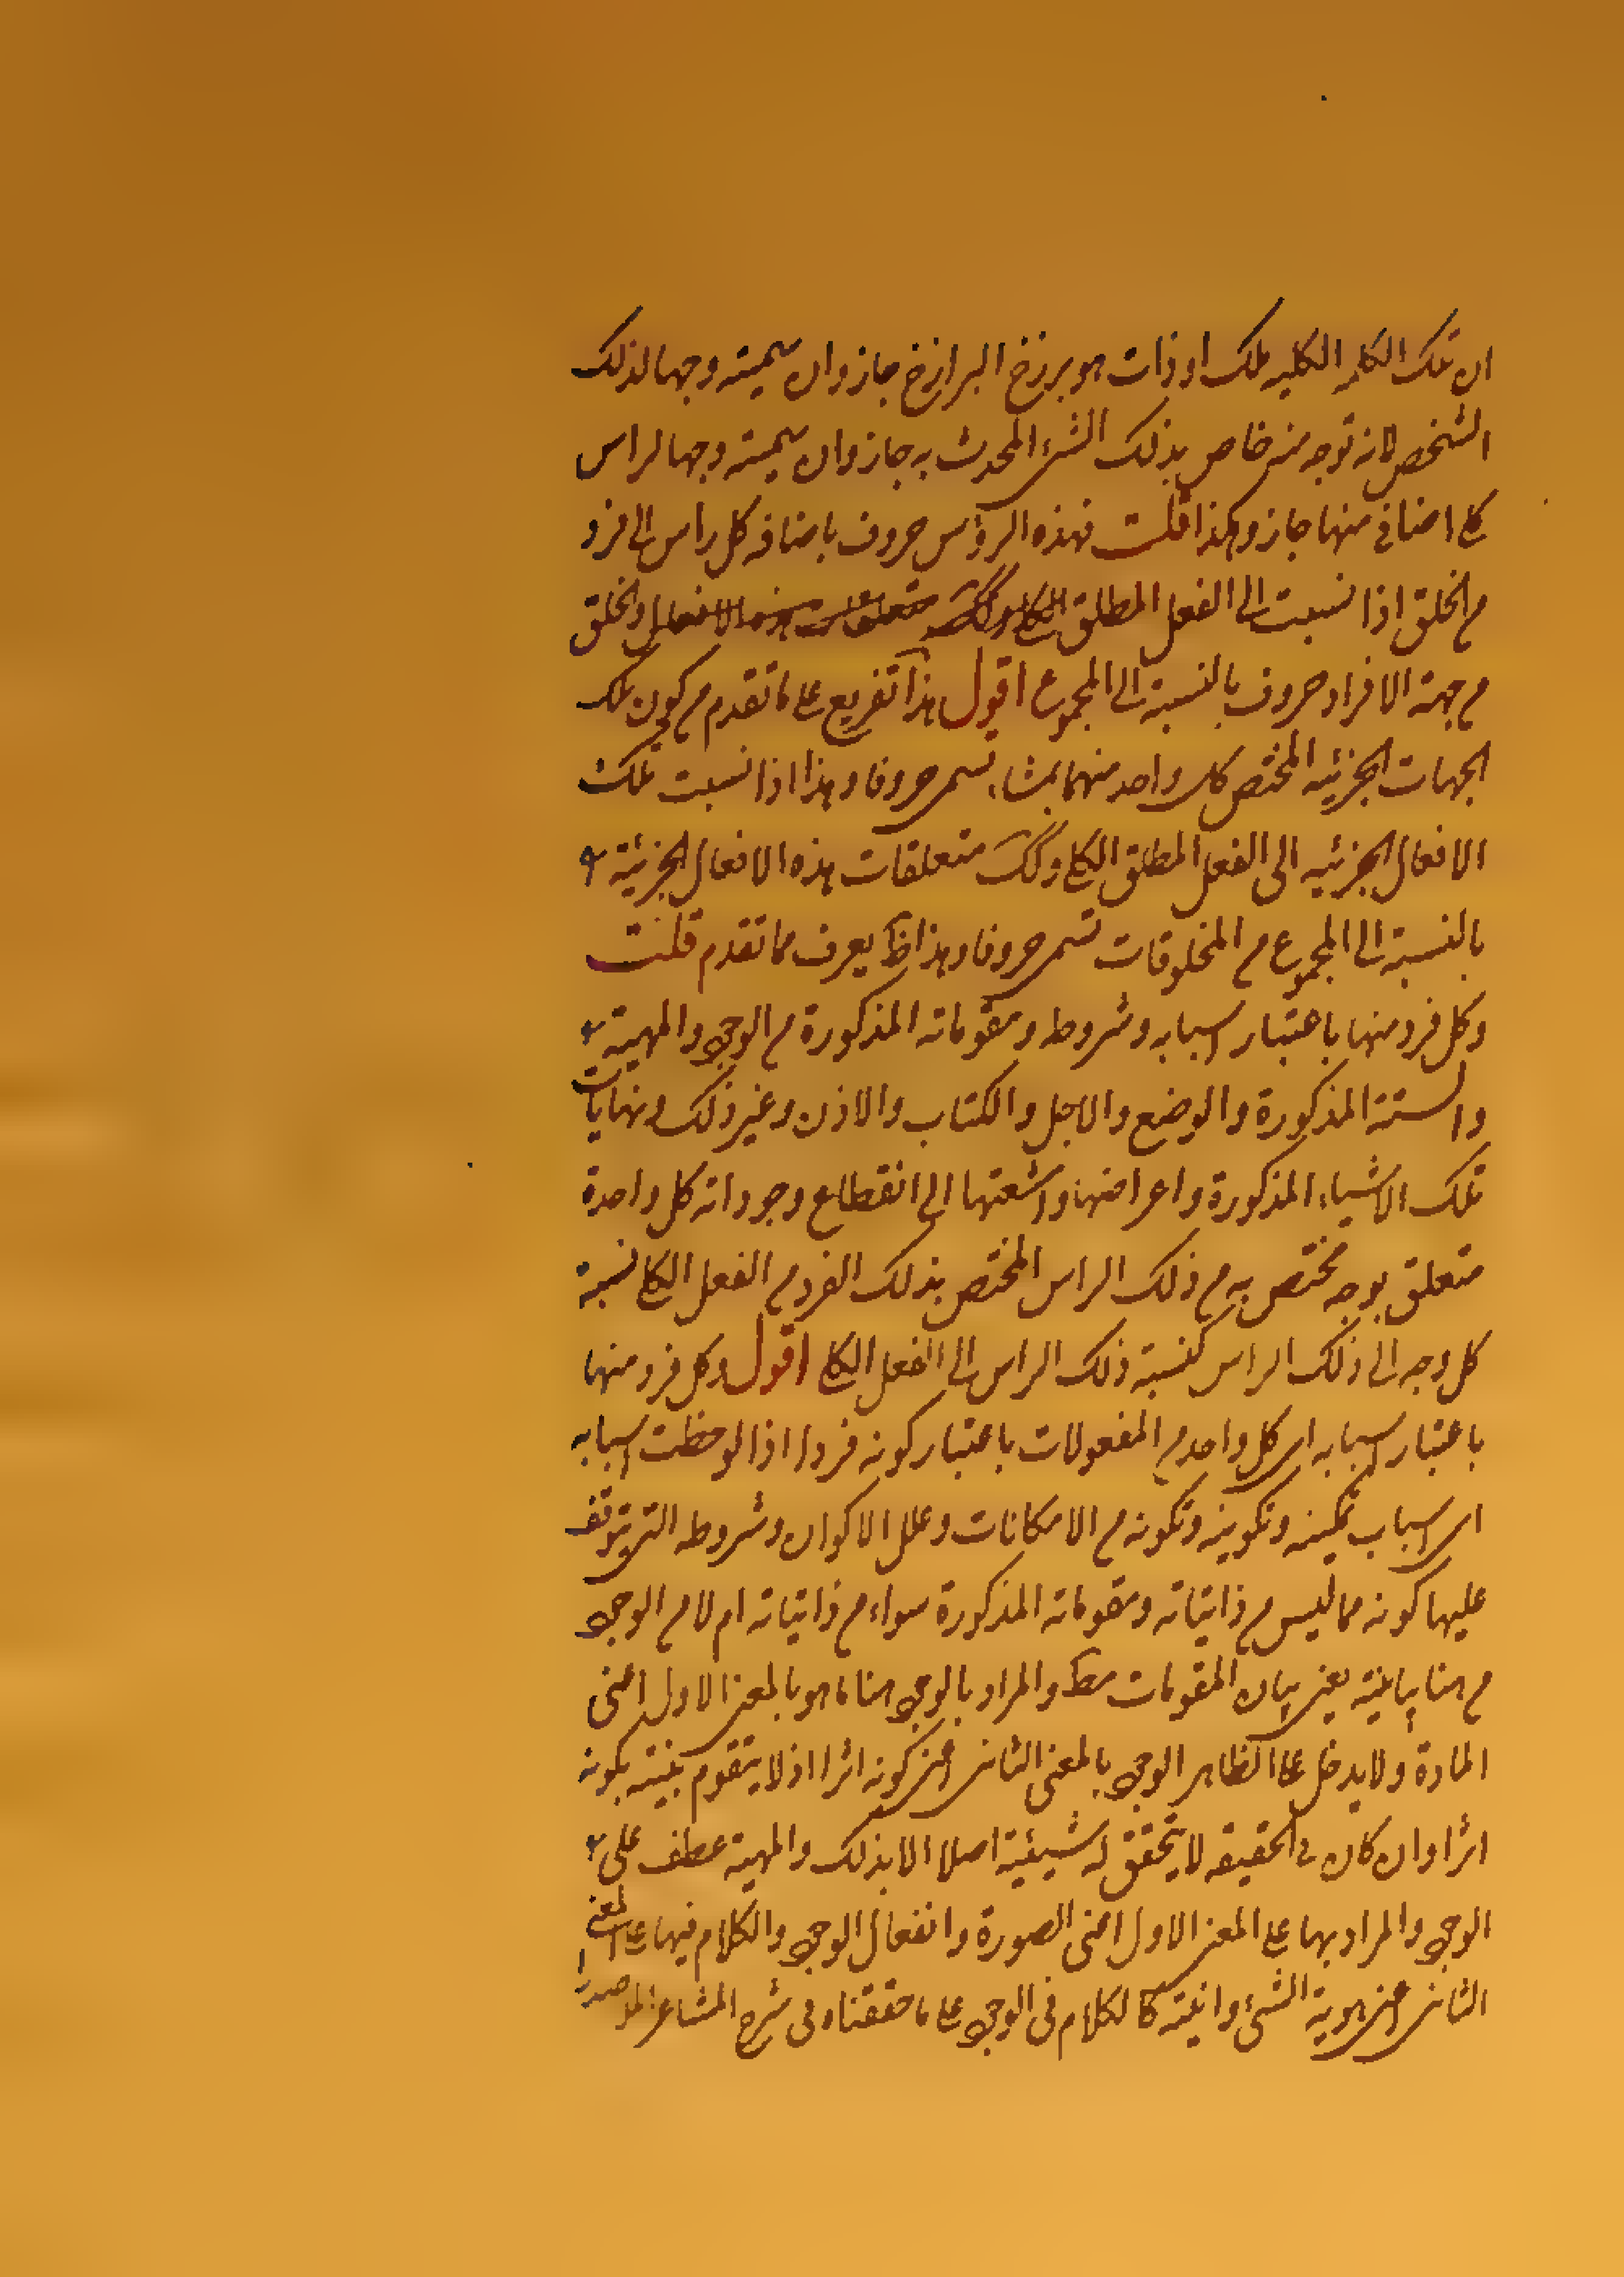 ان تلك الكلمه الكليه تلك او ذات هو برزخ البرازخ جاز وان سميته وجها لذلك
الشخص لانه توجه منه خاص بذلك الشئ المحدث به جاز وان سميته وجها لراس
كلي اضافي منها جاز وهكذا قلت فهذه الرؤس حروف باضافه كل راس الى فرد
من الخلق اذا نسبت الى الفعل المطلق الكلي وكك متعلقات هذه الافعال والخلق
من جهة الافراد حروف بالنسبة الى المجموع اقول هذا تفريع على ما تقدم من كون تلك
الجهات الجزئيه المختص كل واحد منهما بشاء تسمى حروفا وهذا اذا نسبت تلك
الافعال الجزئيه الى الفعل المطلق الكلي وكك متعلقات هذه الافعال الجزئية
بالنسبة الى المجموع من المخلوقات تسمى حروفا وهذا ظ يعرف مما تقدم قلت
وكل فرد منها باعتبار اسبابه وشروط ومقوماته المذكورة من الوجود والمهية
والستة المذكورة والوضع والاجل والكتاب والاذن وغير ذلك ونهايات
تلك الاشياء المذكورة واعراضها واشعتها الى انقطاع وجوداته كل واحدة
متعلق بوجه مختص به من ذلك الراس المختص بذلك الفرد من الفعل الكلي نسبة
كل وجه الى ذلك الراس كنسبة ذلك الراس الى الفعل الكلي اقول وكل فرد منها
باعتبار اسبابه اى كل واحد من المفعولات باعتبار كونه فردا اذا لوحظت اسبابه
اى اسباب تمكينه وتكوينه وتكونه من الامكانات وعلل الاكوان وشروطه التى يتوقف
عليها كونه مما ليس من ذاتياته ومقوماته المذكورة سواء من ذاتياته ام لا من الوجود
من هنا بيانية يعنى بيان المقومات مط والمراد بالوجود هنا ما هو بالمعنى الاول اعنى
المادة ولا يدخل على الظاهر الوجود بالمعنى الثانى اعنى كونه اثرا اذ لا يتقوم بنيته بكونه
اثرا وان كان فى الحقيقه لا يتحقق له شيئية اصلا الا بذلك والمهية عطف على
الوجود والمراد بها على المعنى الاول اعنى الصورة وانفعال الوجود والكلام فيها على المعنى
الثانى اعنى هوية الشئ وانيته كالكلام فى الوجود على ما حققناه فى شرح المشاعر للملا صدرا